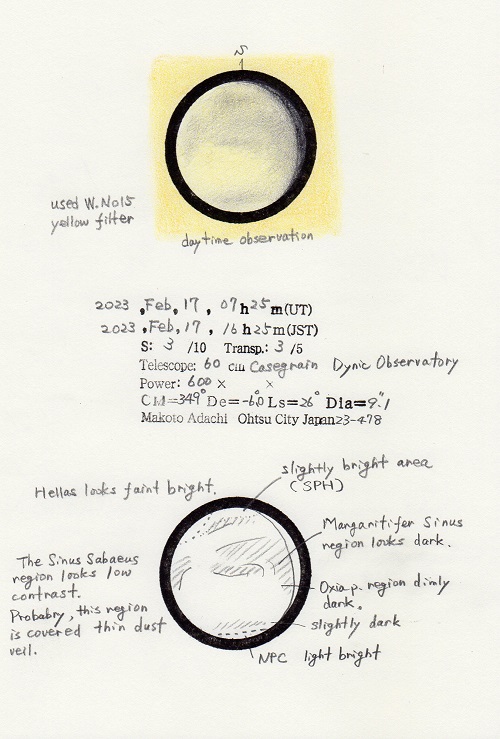 S
used W.No15
yellow filter
daytime observation
2023 ,Feb, 17 , 07h25m(UT)
2023 ,Feb, 17 , 16h25m(JST)
S: 3 /10 Transp.: 3 /5
Telescope: 60 cm Casegrain Dynic Observatory
Power: 600 × ×
CM=349° De=-6.0 Ls=26° Dia=9."1
Makoto Adachi Ohtsu City Japan23-478
slightly bright area
(SPH)
Hellas looks faint bright.
Margaritifer Sinus
region looks dark.
The Sinus Sabaeus
region looks low
contrast.
Probabry, this region
is covered thin dust
veil.
Oxia-p. region dimly
dark.
slightly dark
NPC light bright